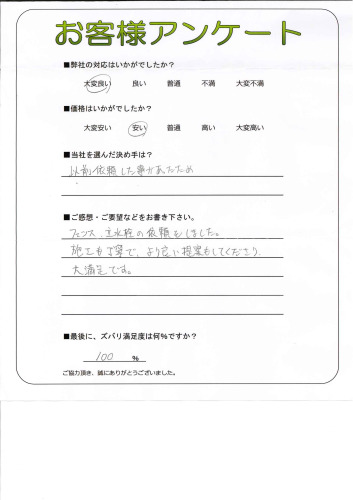 お客様アンケート
■弊社の対応はいかがでしたか？
大変良い 良い 普通 不満 大変不満
■価格はいかがでしたか？
大変安い 安い 普通 高い 大変高い
■当社を選んだ決め手は？
以前依頼した事があったため
■ご感想・ご要望などをお書き下さい。
フェンス、立水栓の依頼をしました。
施工も丁寧で、より良い提案もしてくださり、
大満足です。
■最後に、ズバリ満足度は何％ですか？
100 ％
ご協力頂き、誠にありがとうございました。